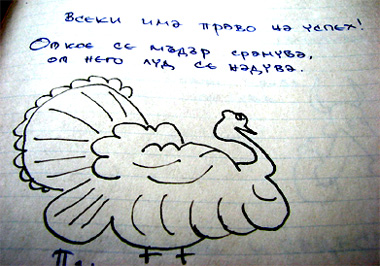 Всеки има право на успех!
От кое се мъдър срамува,
от него луд се надува.